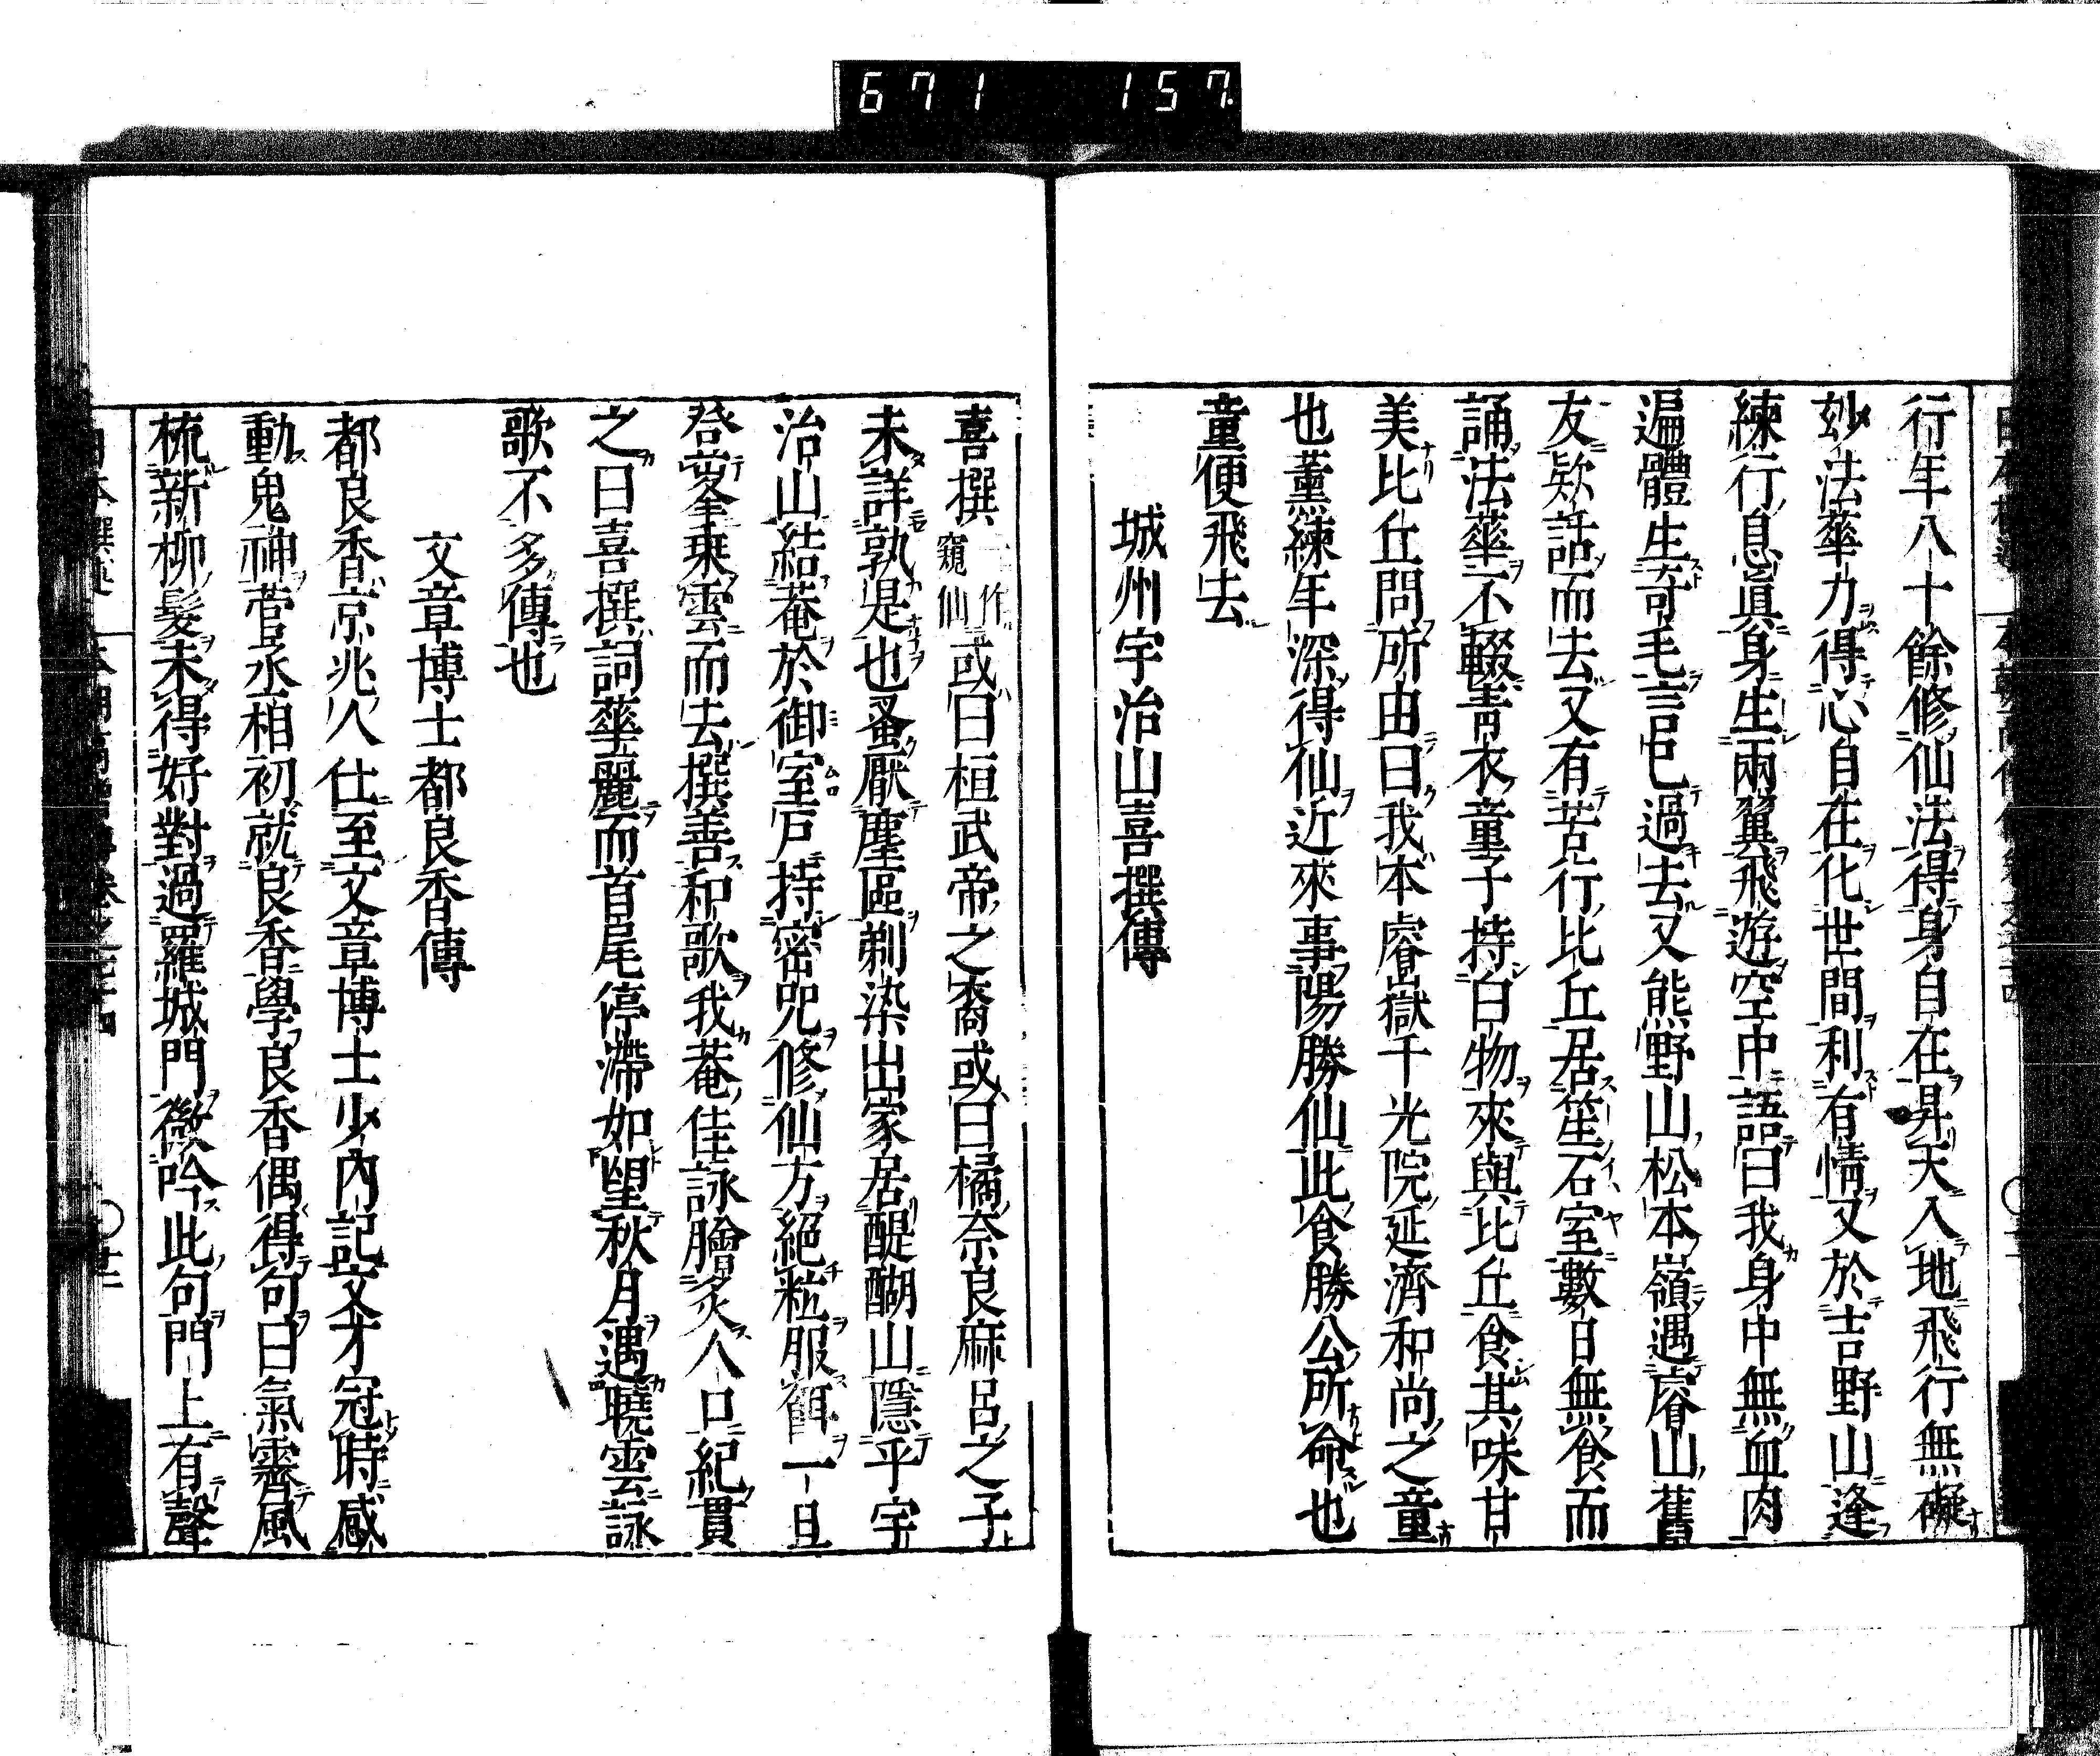 671 157
行年八十餘修仙法得身自在昇天入地飛行無礙
玅法華力得心自在化世間利有情又於吉野山逢
練行息眞身生兩翼飛遊空中語曰我身中無血肉
遍體生奇毛言已過去又熊野山松本嶺遇睿山舊
友欵話而去又有苦行比丘居笙石室數日無食而
誦法華不輟青衣童子持白物來與比丘食其味甘
美比丘問所由曰我本睿嶽千光院延濟和尚之童
也薰練年深得仙近來事陽勝仙此食勝公所命也
童便飛去
城州宇治山喜撰傳
喜撰一作窺仙或曰桓武帝之裔或曰橘奈良麻呂之子
未詳孰是也蚤厭塵區剃染出家居醍醐山隱乎宇
治山結菴於御室戸持密咒修仙方絕粒服餌一旦
登峯乗雲而去撰善和歌我菴佳詠膾炙人口紀貫
之曰喜撰詞華麗而首尾停滯如望秋月遇曉雲詠
歌不多傳也
文章博士都良香傳
都良香京兆人仕至文章博士少內記文才冠時感
動鬼神菅丞相初就良香學良香偶得句曰氣霽風
梳新柳髮未得好對過羅城門微吟此句門上有聲